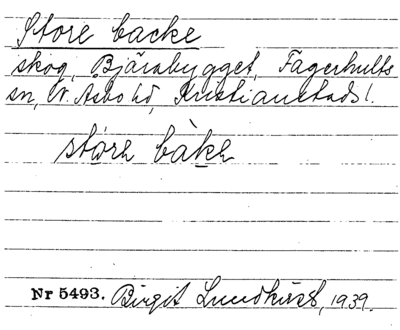 Store backe
skog, Bjärabygget, Fagerhults
sn, N. Åsbo hd, Kristianstads l.
störe bàke
Nr 5493. Birgit Lundkvist, 1939.